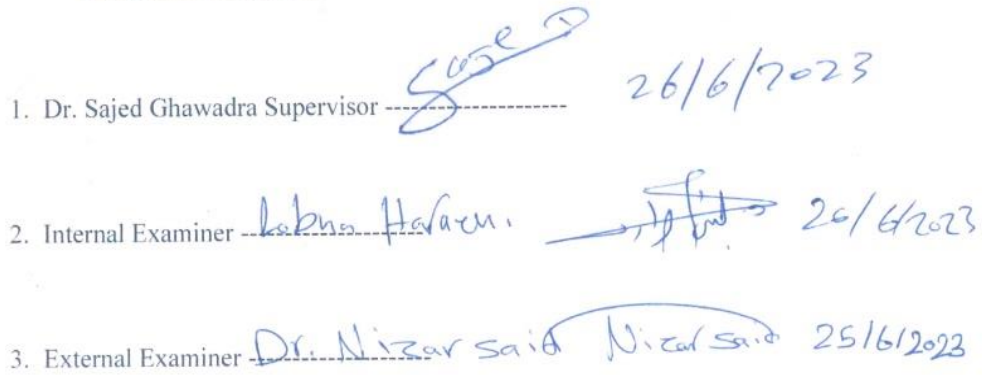 1. Dr. Sajed Ghawadra Supervisor ------------------- 26/6/2023
2. Internal Examiner ------------------- Lubna 26/6/2023
3. External Examiner ------------------- Dr. Nizar Said Nizar Said 25/6/2023